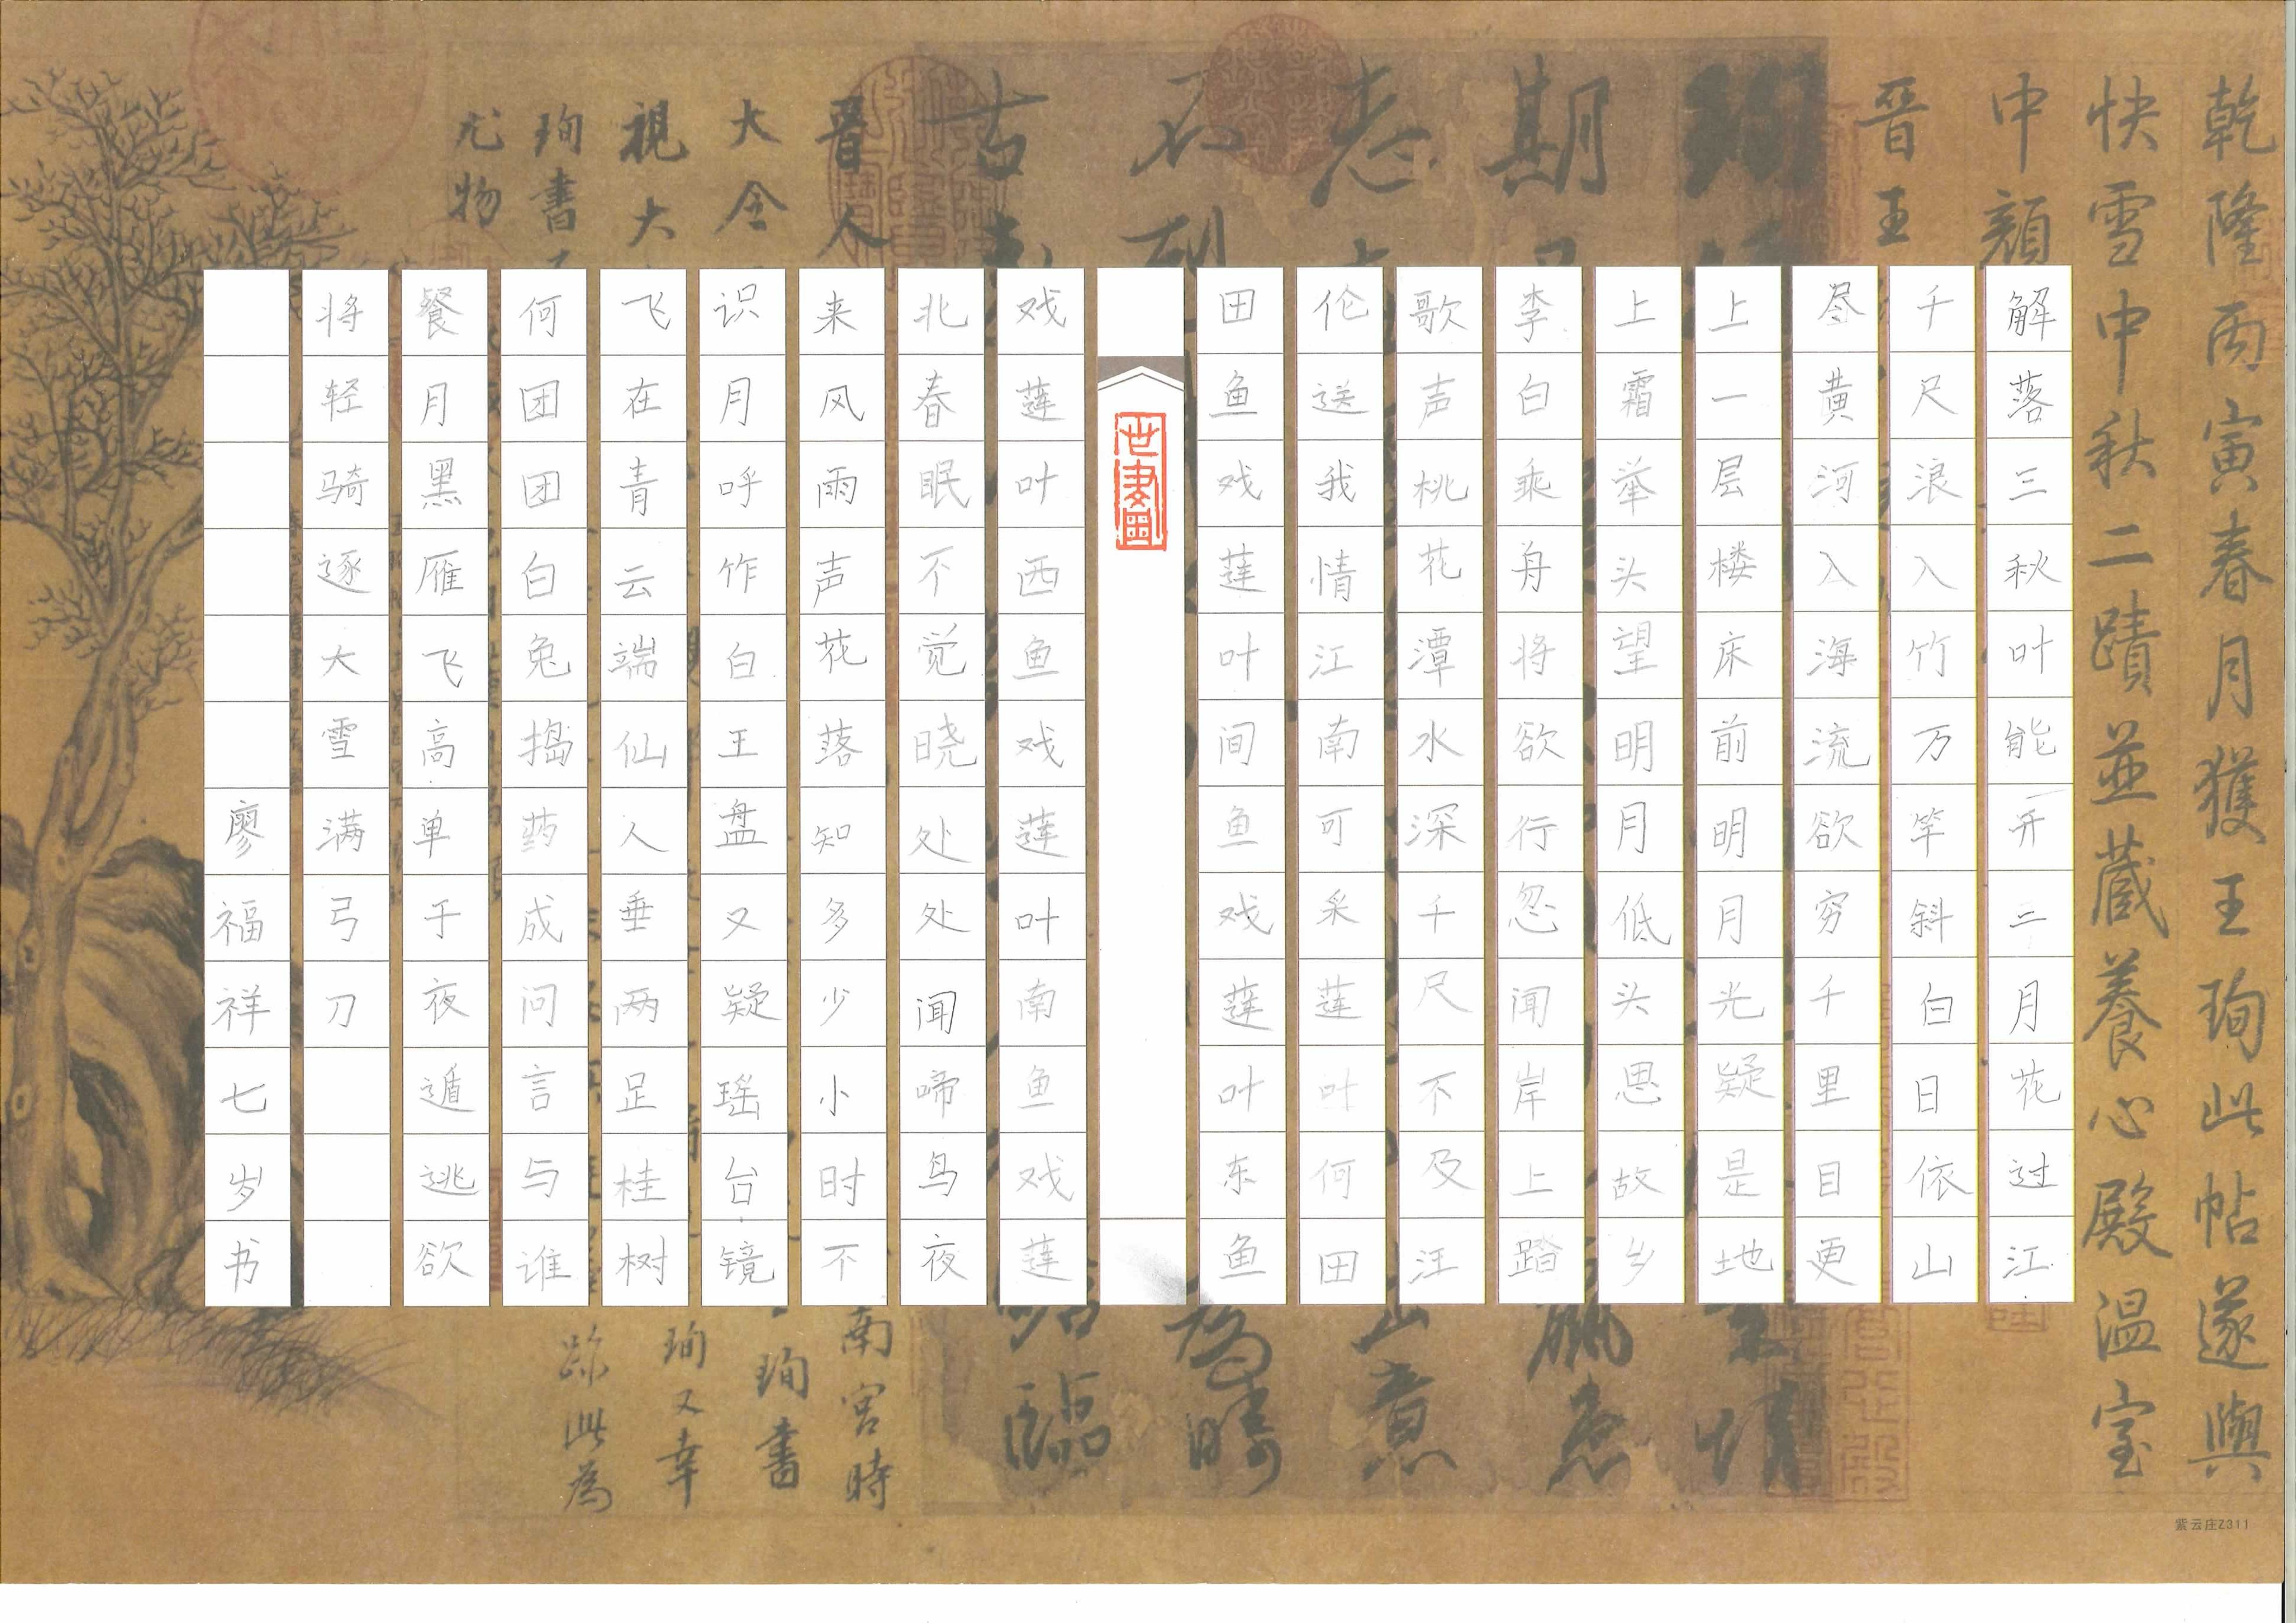 乾隆丙寅春月獲王珣此帖遂與
快雪中秋二蹟並蔵養心殿温室
中顏
晉王
解落三秋叶能开二月花过江
千尺浪入竹万竿斜白日依山
尽黄河入海流欲穷千里目更
上一层楼床前明月光疑是地
上霜举头望明月低头思故乡
李白乘舟将欲行忽闻岸上踏
歌声桃花潭水深千尺不及汪
伦送我情江南可采莲叶何田
田鱼戏莲叶间鱼戏莲叶东鱼
戏莲叶西鱼戏莲叶南鱼戏莲
北春眠不觉晓处处闻啼鸟夜
来风雨声花落知多少小时不
识月呼作白王盘又疑瑶台镜
飞在青云端仙人垂两足桂树
何团团白兔捣药成问言与谁
餐月黑雁飞高单于夜遁逃欲
将轻骑逐大雪满弓刀
廖福祥七岁书
期
晉人
大令
視大
珣書
尤物
南宮時
珣書
珣又幸
跡此為
紫云庄Z311